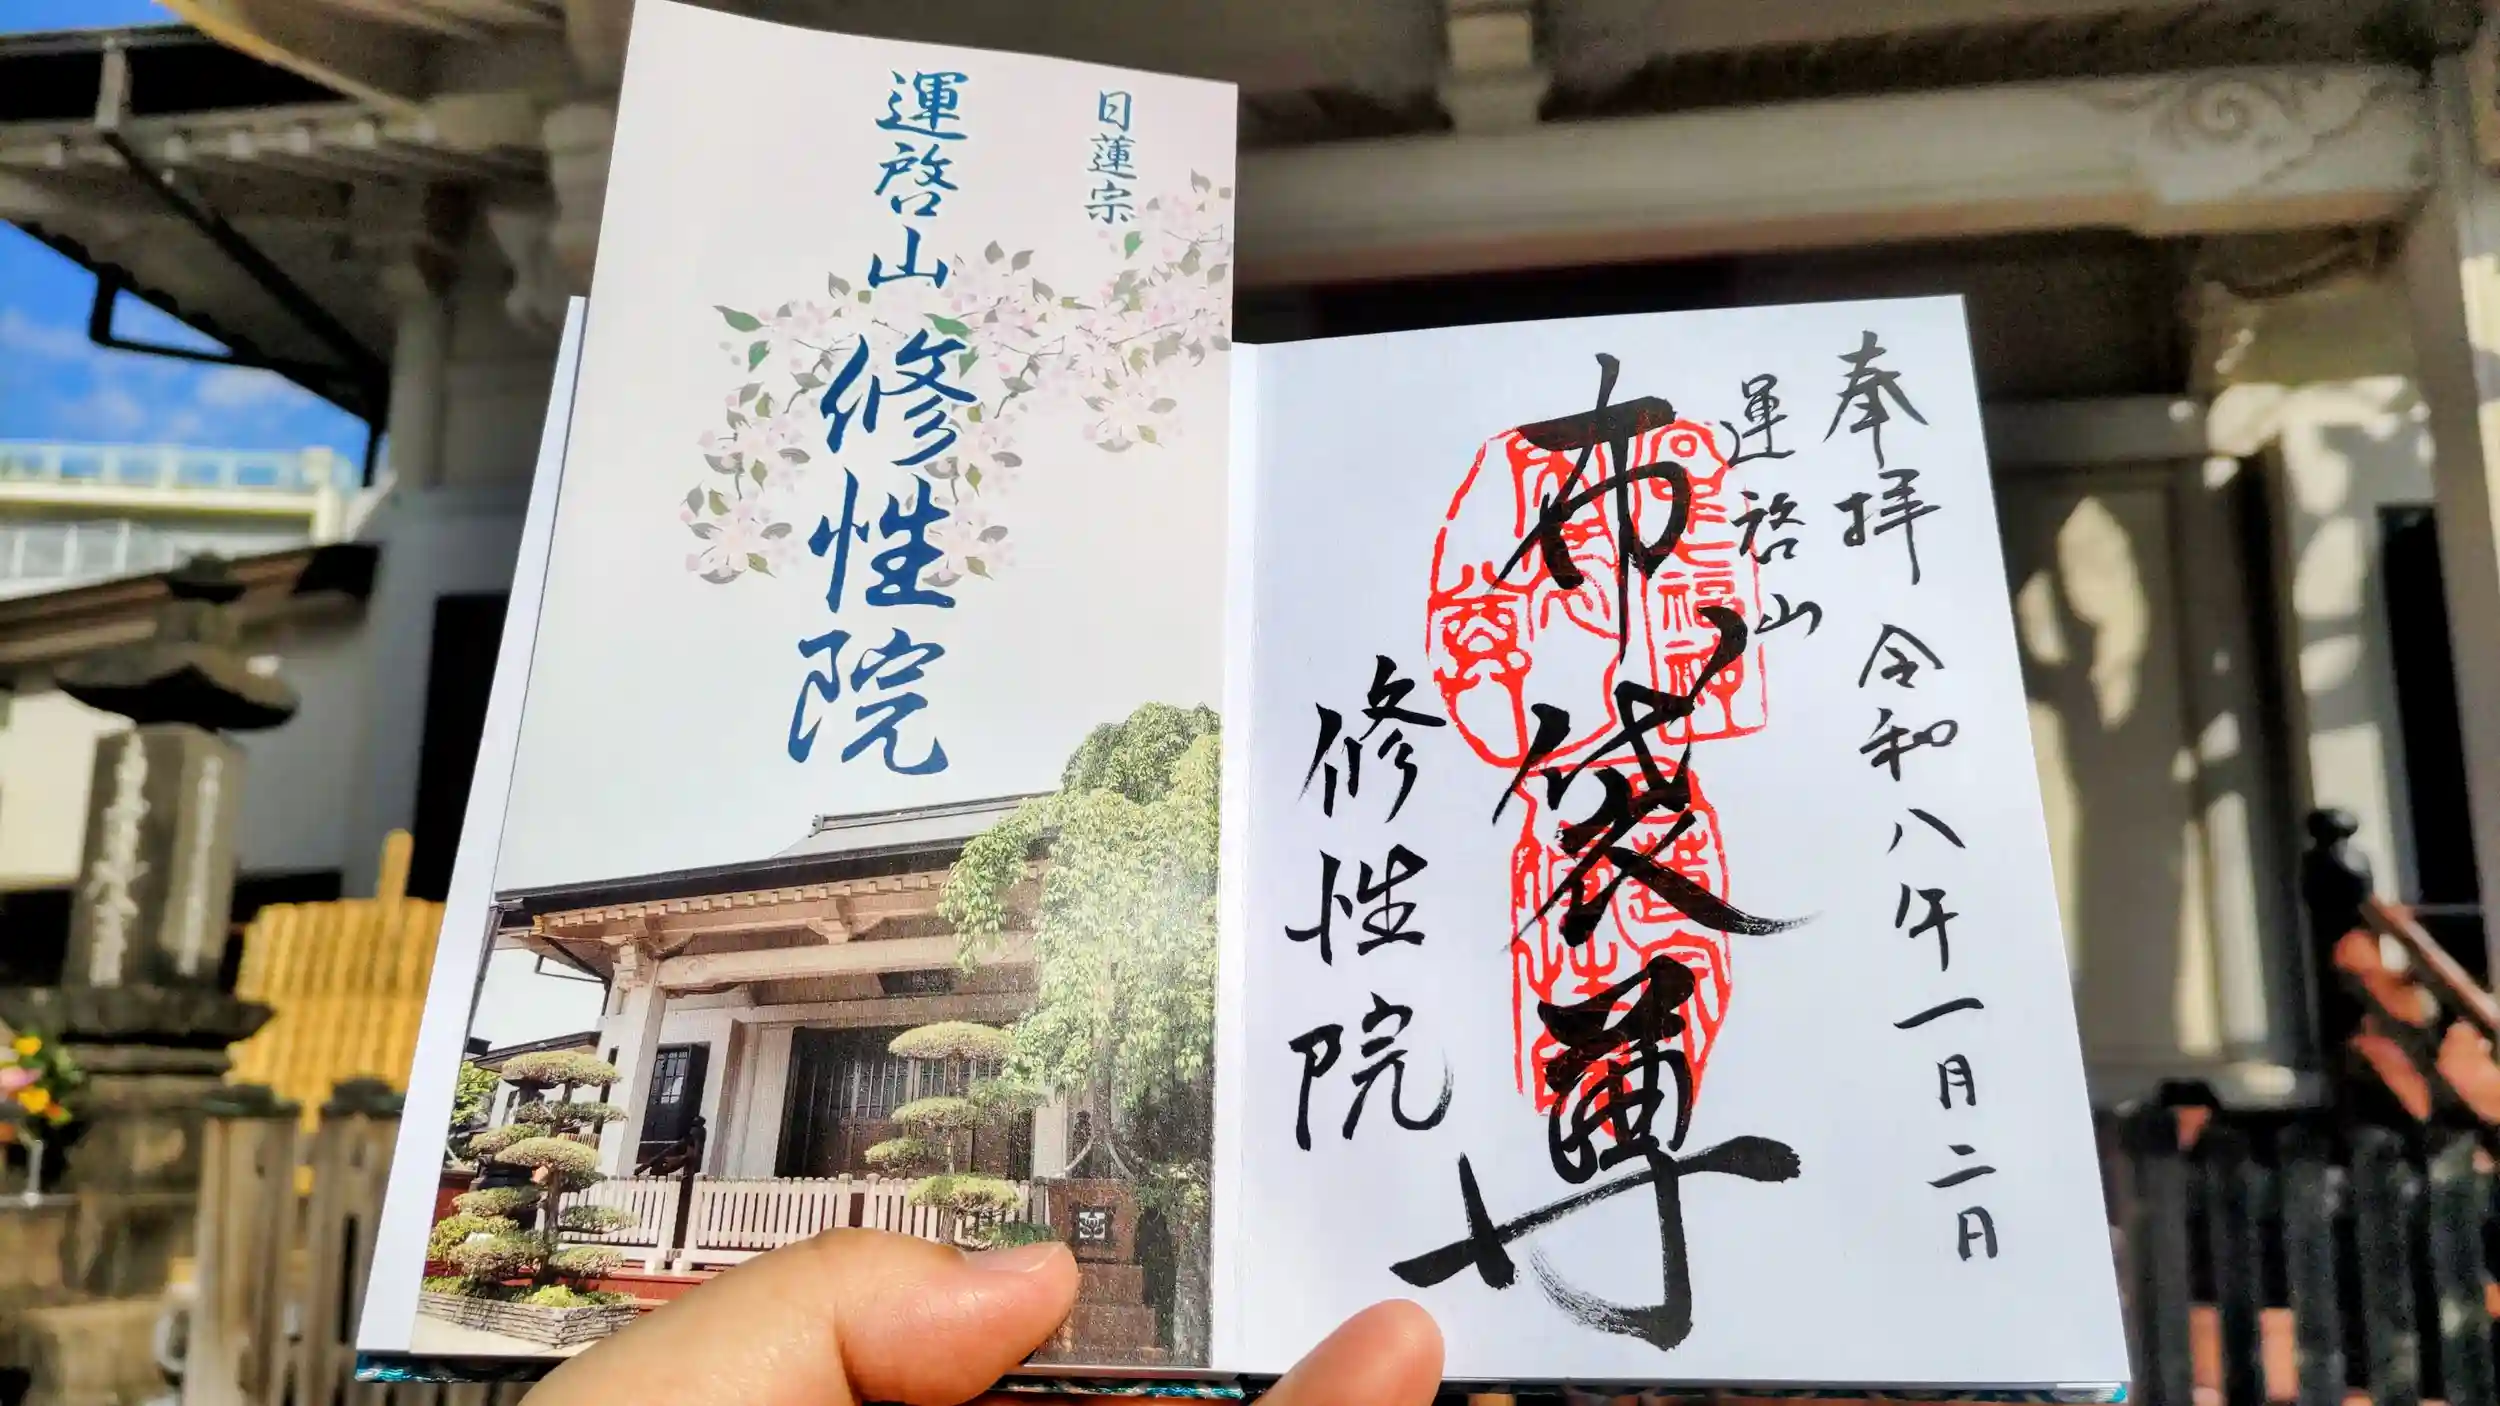 日蓮宗
運啓山 修性院
奉拝 令和八年一月二日
運啓山
布袋尊
修性院